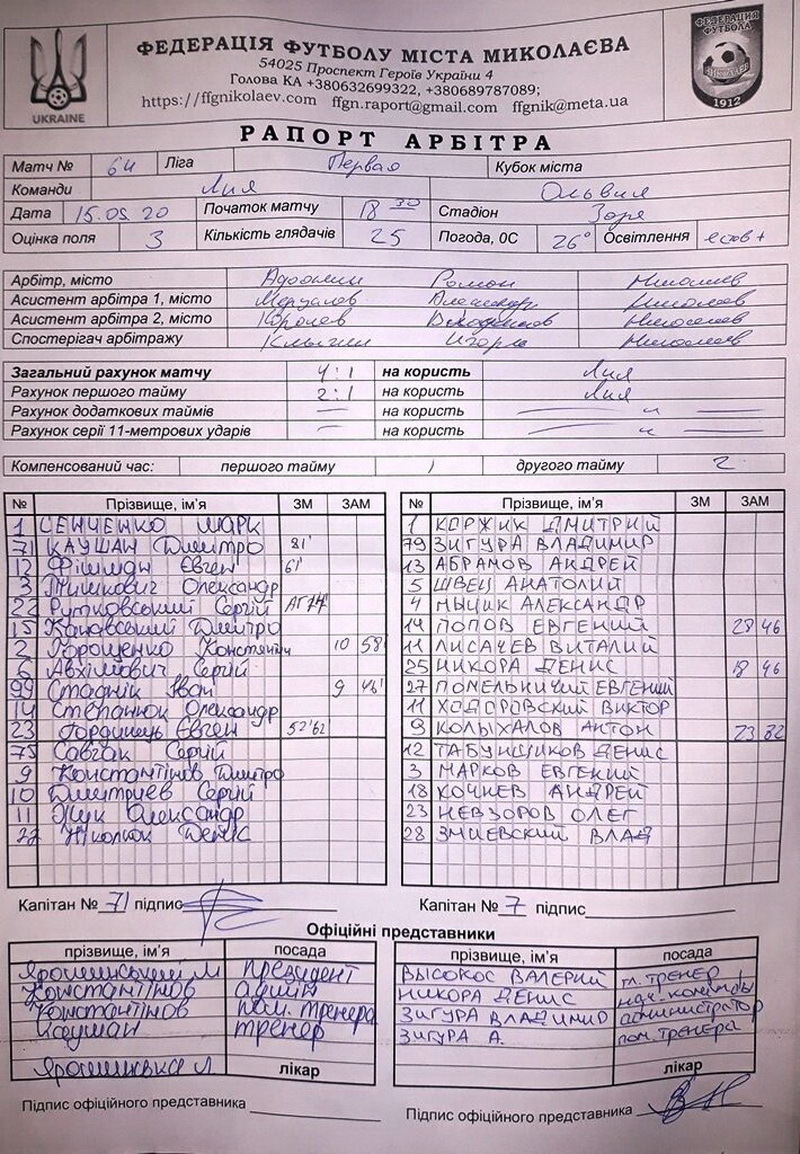 ФЕДЕРАЦІЯ ФУТБОЛУ МІСТА МИКОЛАЄВА
54025 Проспект Героїв України 4
Голова КА +380632699322, +380689787089;
https://ffgnikolaev.com ffgn.raport@gmail.com ffgnik@meta.ua
UKRAINE
ФЕДЕРАЦИЯ ФУТБОЛА
НИКОЛАЕВ
1912
РАПОРТ АРБІТРА
Матч № 64 Ліга Первая Кубок міста
Команди Лия Ольвия
Дата 15.05.20 Початок матчу 18 30 Стадіон Заря
Оцінка поля 3 Кількість глядачів 25 Погода, 0С 26° Освітлення
Арбітр, місто Роман Николаев
Асистент арбітра 1, місто Александр Николаев
Асистент арбітра 2, місто Королев Николаев
Спостерігач арбітражу Игорь Николаев
Загальний рахунок матчу 4:1 на користь Лия
Рахунок першого тайму 2:1 на користь Лия
Рахунок додаткових таймів — на користь — " —
Рахунок серії 11-метрових ударів — на користь — " —
Компенсований час: першого тайму 1 другого тайму 2
№ Прізвище, ім'я ЗМ ЗАМ № Прізвище, ім'я ЗМ ЗАМ
1 СЕНЧЕНКО МАРК 1 КОРЖИК ДМИТРИЙ
71 КАУШАН Дмитро 81' 79 ЗИГУРА ВЛАДИМИР
12 Фішман Євген 61' 13 АБРАМОВ АНДРЕЙ
3 Тишкович Олександр 5 ШВЕЦ АНАТОЛИЙ
22 Рутковський Сергій АГ14' 4 МЫЦИК АЛЕКСАНДР
15 Канавський Дмитро 14 ПОПОВ ЕВГЕНИЙ 28 46
2 Горощенко Костянтин 10 58 11 ЛИСАЧЕВ ВИТАЛИЙ
6 Авхімович Сергій 25 НИКОРА ДЕНИС 18 46
99 Стаднік Іван 9 46' 27 ПОМЕЛЬНИЧИЙ ЕВГЕНИЙ
14 Степанюк Олександр 11 ХОДОРОВСКИЙ ВИКТОР
23 Гординець Євген 52' 62' 9 КОЛЫХАЛОВ АНТОН 23 82
75 Савчак Сергій 12 ТАБУНЩИКОВ ДЕНИС
9 Константінов Дмитро 3 МАРКОВ ЕВГЕНИЙ
10 Дмитриев Сергій 18 КОЧНЕВ АНДРЕЙ
11 Жук Олександр 23 НЕВЗОРОВ ОЛЕГ
Ніколюк Денис 28 ЗМИЕВСКИЙ ВЛАД
Капітан № 71 підпис Капітан № 7 підпис
Офіційні представники
прізвище, ім'я посада прізвище, ім'я посада
президент ВЫСОКОС ВАЛЕРИЙ гл. ТРЕНЕР
Константінов адмін НИКОРА ДЕНИС нач. команды
Константінов пом. тренера ЗИГУРА ВЛАДИМИР администратор
Каушан тренер ЗИГУРА А. пом. ТРЕНЕРА
лікар лікар
Підпис офіційного представника Підпис офіційного представника